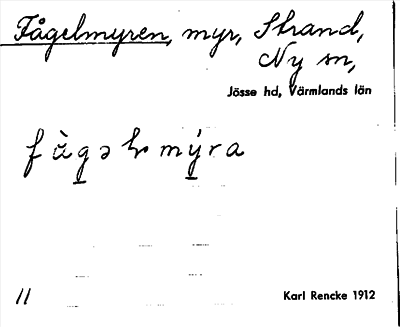 Fågelmyren, myr, Strand,
Ny sn,
Jösse hd, Värmlands län
11
Karl Rencke 1912